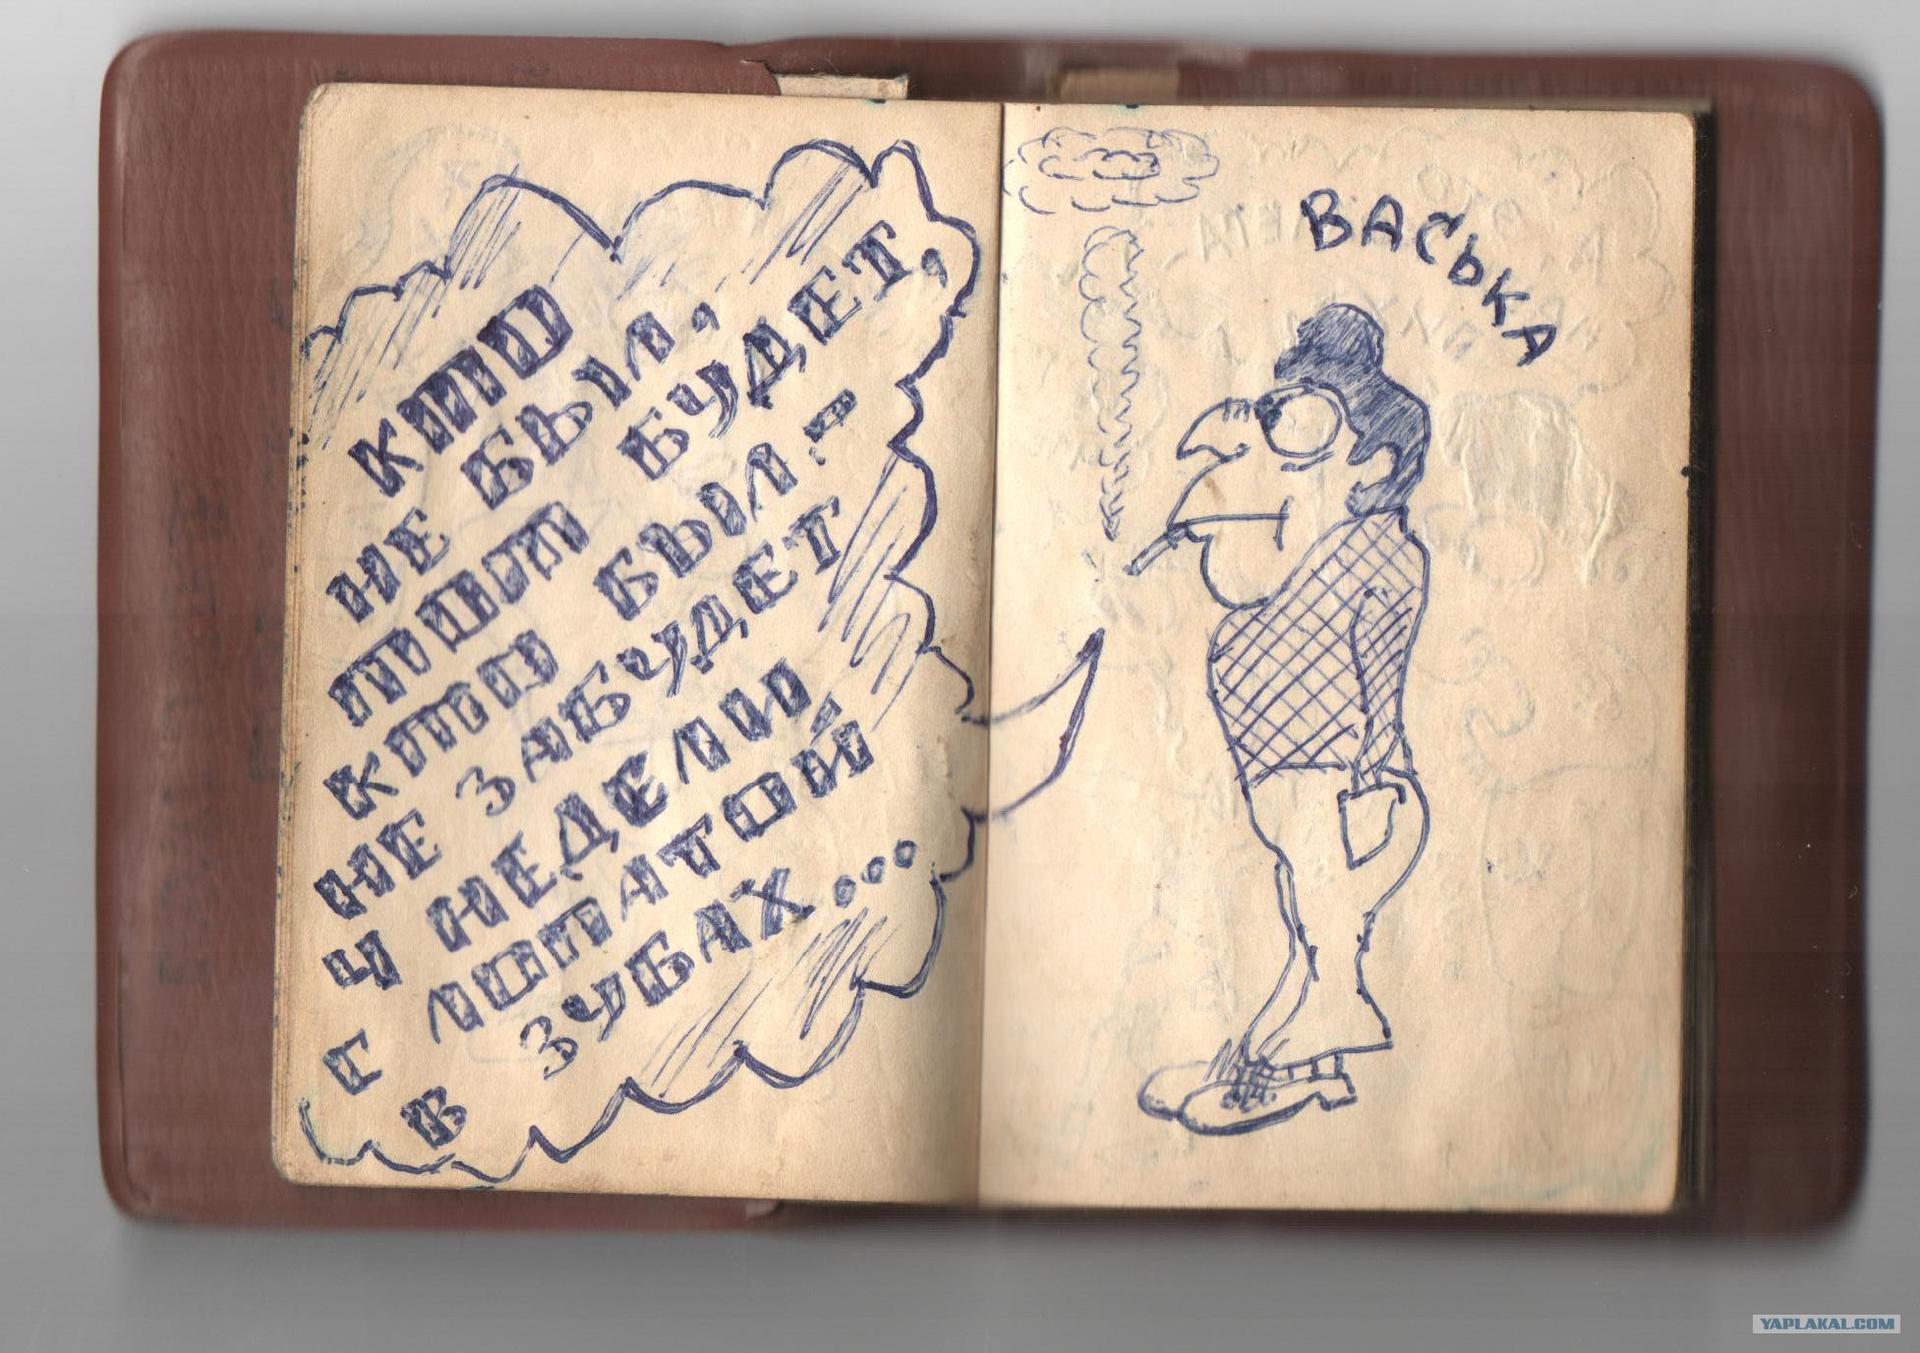 КТО
НЕ БЫЛ,
ТОТ БУДЕТ,
КТО БЫЛ -
НЕ ЗАБУДЕТ
4 НЕДЕЛИ
С ЛОПАТОЙ
В ЗУБАХ...
ВАСЬКА
YAPLAKAL.COM